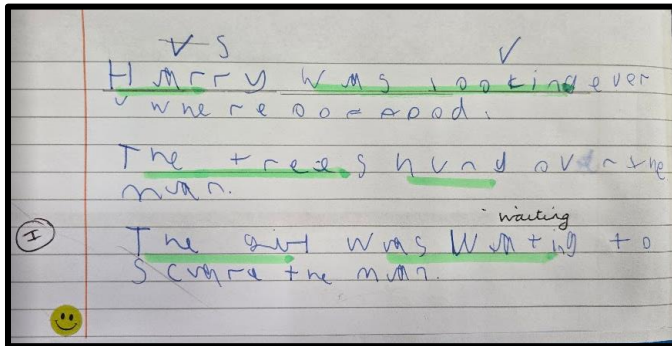 V S V
Harry was looking ever
y where
The trees hung over the
man.
waiting
I The girl was Wating to
Scare the man.